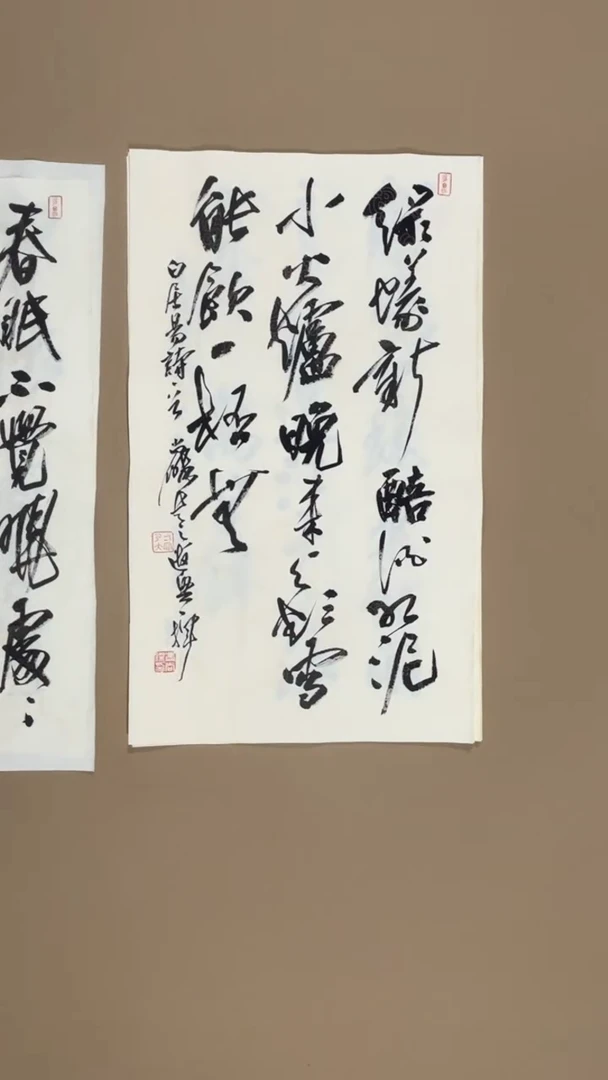 綠蟻新醅酒紅泥
小火爐晚來天欲雪
能飲一桮無
白居易詩
春眠不覺曉處〻